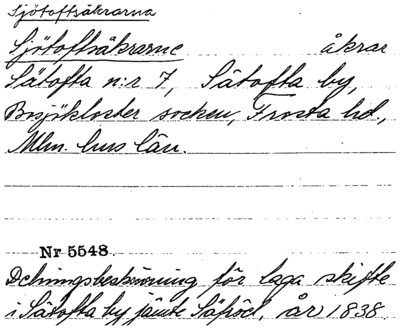 Sjötoftsåkrarna
Sjötoftsåkrarne åkrar
Sätofta n:r 7, Sätofta by,
Bosjökloster socken, Frosta hd.,
Mlm. hus län.
Nr 5548.
Delningsbeskrivning för laga skifte
i Sätofta by jämte Säfröd, år 1838